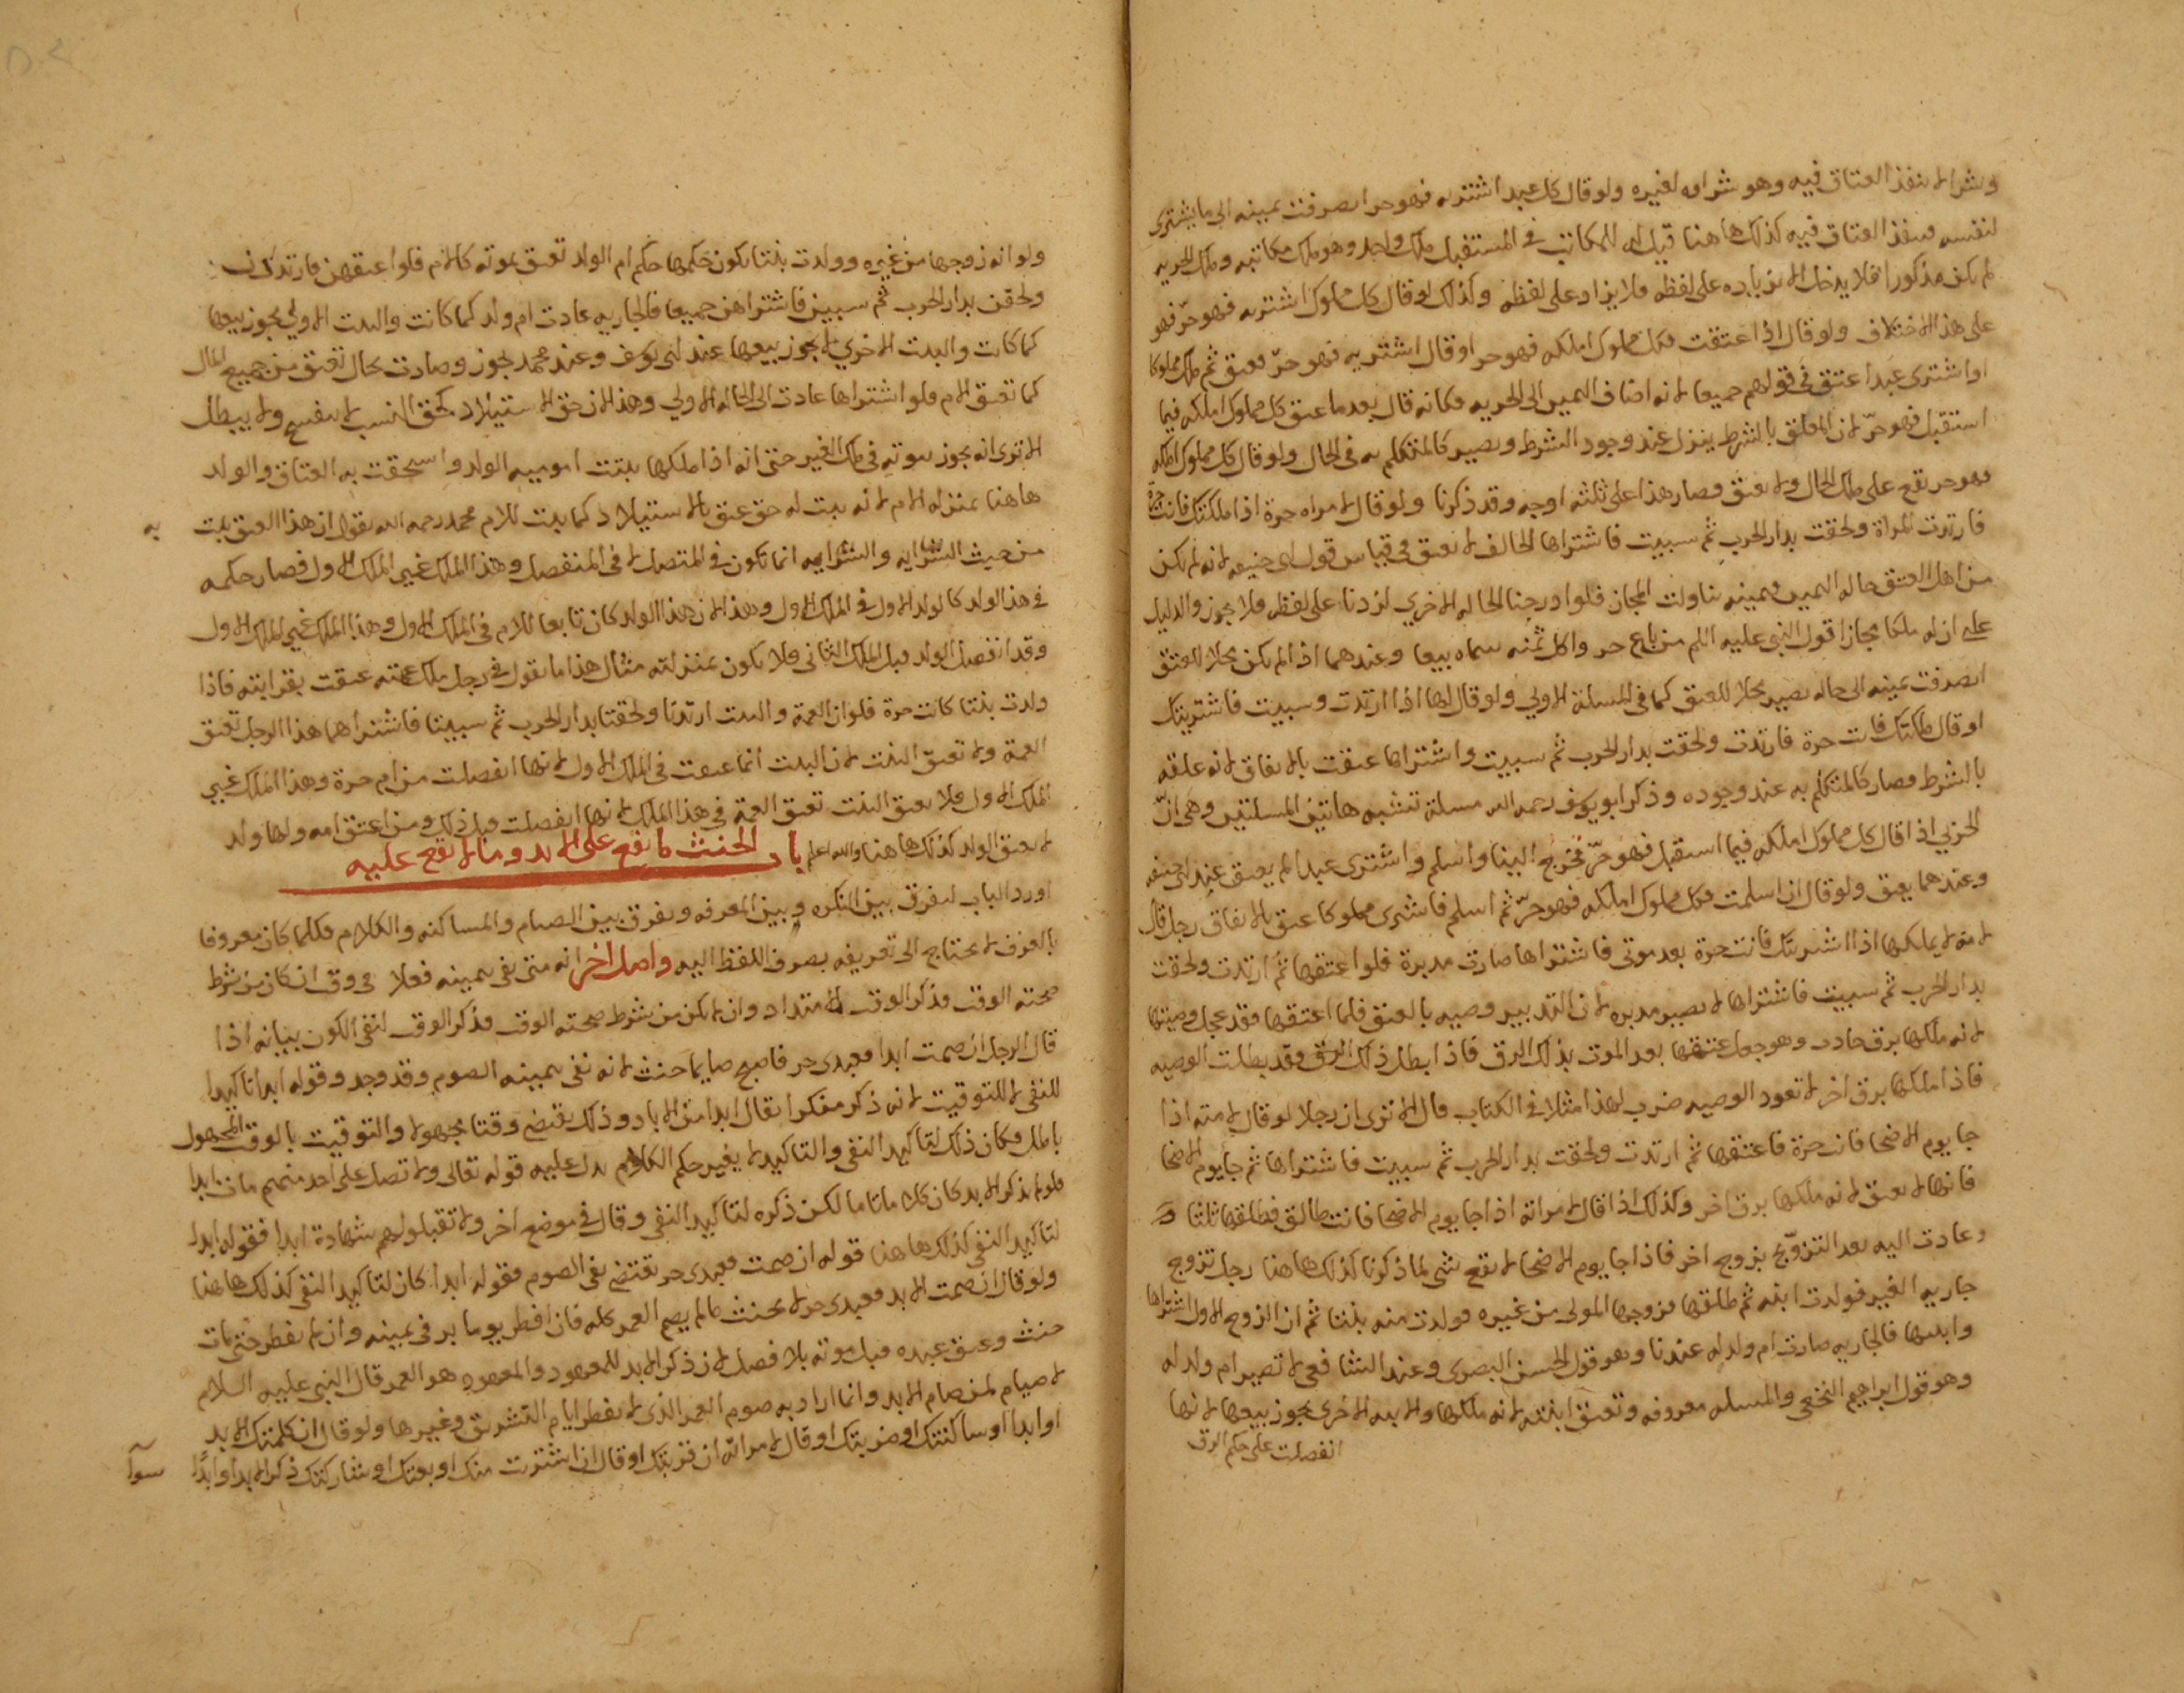 وشرا لا ينفذ العتاق فيه وهو شراه لغيره ولو قال كل عبد اشتريه فهو حر انصرفت يمينه الى ما يشترى
لنفسه فينفذ العتاق فيه كذلك هاهنا قيل له للمكاتب فى المستقبل ملك واحد وهو ملك مكاتبه وملك الحريه
لم يكن مذكورا فلا يدخل لانه زياده على لفظه فلا يزاد على لفظه وكذلك لو قال كل مملوك اشتريه فهو حرّ فهو
على هذا الاختلاف ولو قال اذا اعتقت فكل مملوك املكه فهو حر او قال اشتريه فهو حرّ فعتق ثم ملك مملوكا
او اشترى عبدا عتق فى قولهم جميعا لانه اضاف اليمين الى الحريه فكانه قال بعد ما عتق كل مملوك املكه فيما
استقبل فهو حرّ لان المعلق بالشرط ينزل عند وجود الشرط ويصير كالمتكلم به فى الحال ولو قال كل مملوك املكه
فهو حر يقع على ملك الحال ولا يعتق فصار هذا على ثلثه اوجه وقد ذكرنا ولو قال لامراه حرة اذا ملكتك فانت حرة
فارتدت المراة ولحقت بدار الحرب ثم سبيت فاشتراها الحالف لا يعتق فى قياس قول ابى حنيفه لانه لم يكن
من اهل العتق حاله اليمين فيمينه تناولت المجاز فلو ادرجنا الحاله الاخرى لزدنا على لفظه فلا يجوز والدليل
على ان له ملكا مجازا قول النبى عليه السلم من باع حر واكل ثمنه سماه بيعا وعندهما اذا لم يكن محلا للعتق
انصرفت يمينه الى حاله يصير محلا للعتق كما فى المسلة الاولى ولو قال لها اذا ارتدت وسبيت فاشتريتك
او قال ملكتك فانت حرة فارتدت ولحقت بدار الحرب ثم سبيت واشتراها عتقت بالاتفاق لانه علقه
بالشرط فصار كالمتكلم به عند وجوده وذكر ابو يوسف رحمه الله مسلة تشبه هاتين المسلتين وهى انّ
الحربى اذا قال كل مملوك املكه فيما استقبل فهو حرّ فخرج الينا واسلم واشترى عبدا لم يعتق عند ابى حنيفه
وعندهما يعتق ولو قال ان اسلمت فكل مملوك املكه فهو حرّ ثم اسلم فاشترى مملوكا عتق بالاتفاق رجل قال
لامة لا يملكها اذا اشتريتك فانت حرة بعد موتى فاشتراها صارت مدبرة فلو اعتقها ثم ارتدت ولحقت
بدار الحرب ثم سبيت فاشتراها لا يصير مدبره لان التدبير وصيه بالعتق فلما اعتقها فقد عجل وصيتها
لانه ملكها برق حادث وهو جعل عتقها بعد الموت بذلك الرق فاذا ابطل ذلك الرق فقد بطلت الوصيه
فاذا ملكها برق اخر لا تعود الوصيه ضرب لهذا مثلا فى الكتاب قال الا ترى ان رجلا لو قال لامته اذا
جا يوم الاضحا فانت حرة فاعتقها ثم ارتدت ولحقت بدار الحرب ثم سبيت فاشتراها ثم جا يوم الاضحا
فانها لا يعتق لانه ملكها برق اخر وكذلك اذا قال لامراته اذا جا يوم الاضحا فانت طالق فطلقها ثلثا
وعادت اليه بعد التزوّج بزوج اخر فاذا جا يوم الاضحا لا يقع شى لما ذكرنا كذلك هاهنا رجل تزوج
جاريه الغير فولدت ابنه ثم طلقها فزوجها المولى من غيره فولدت منه بنتا ثم ان الزوج الاول اشتراها
وابنتيها فالجاريه صارت ام ولد له عندنا وهو قول الحسن البصرى وعند الشافعى لا تصير ام ولد له
وهو قول ابراهيم النخعى والمسله معروفه وتعتق ابنته لانه ملكها والابنه الاخرى يجوز بيعها لانها
انفصلت على حكم الرق
ولو انه زوجها من غيره وولدت بنتا يكون حكمها حكم ام الولد تعتق بموته كالام فلو اعتقهن فارتددن
ولحقن بدار الحرب ثم سبين فاشتراهن جميعا فالجاريه عادت ام ولد كما كانت والبنت الاولى يجوز بيعها
كما كانت والبنت الاخرى لا يجوز بيعها عند ابى يوسف وعند محمد يجوز وصارت بحال تعتق من جميع المال
كما تعتق الام فلو اشتراها عادت الى الحاله الاولى وهذا لان حق الاستيلاد كحق النسب لا ينفسخ ولا يبطل
الا ترى انه يجوز ثبوته فى ملك الغير حتى انه اذا ملكها ثبتت اموميه الولد واستحقت به العتاق والولد
هاهنا بمنزله الام لانه ثبت له حق عتق بالاستيلاد كما ثبت للام محمد رحمه الله يقول ان هذا العتق ثبت به
من حيث السرايه والسرايه انما تكون فى المتصل لا فى المنفصل وهذا الملك غير الملك الاول فصار حكمه
فى هذا الولد كالولد الاول فى الملك الاول وهذا لان هذا الولد كان تابعا للام فى الملك الاول وهذا الملك غير الملك الاول
وقد انفصل الولد قبل الملك الثانى فلا يكون بمنزلته مثال هذا ما نقول فى رجل ملك عمته عتقت بقرابته فاذا
ولدت بنتا كانت حرة فلو ان العمة والبنت ارتدتا ولحقتا بدار الحرب ثم سبيتا فاشتراهما هذا الرجل تعتق
العمة ولا تعتق البنت لان البنت انما عتقت فى الملك الاول لانها انفصلت من ام حرة وهذا الملك غير
الملك الاول فلا يعتق البنت تعتق العمة فى هذا الملك لانها انفصلت قبل ذلك ومن اعتق امه ولها ولد
لا يعتق الولد كذلك هاهنا والله اعلم باب الحنث ما يقع على الابد وما لا يقع عليه
اورد الباب ليفرق بين النكره وبين المعرفه ويفرق بين الصيام والمساكنه والكلام فكلما كان معروفا
بالعرف لا يحتاج الى تعريفه بصرف اللفظ اليه واصل اخر انه متى نفى بيمينه فعلا فى وقت ان كان من شرط
صحته الوقت فذكر الوقت لامتداد وان لم يكن من شرط صحته الوقت فذكر الوقت لنفى الكون بيانه اذا
قال الرجل ان صمت ابدا فعبدى حر فاصبح صايما حنث لانه نفى بيمينه الصوم وقد وجد وقوله ابدا تاكيدا
للنفى لا للتوقيت لانه ذكر منكرا يقال ابدا من الاباد وذلك يقتضى وقتا مجهولا والتوقيت بالوقت المجهول
باطل فكان ذلك لتاكيد النفى والتاكيد لا يغير حكم الكلام دل عليه قوله تعالى ولا تصل على احد منهم مات ابدا
فلو لم يذكر الابد كان كلاما تاما لكن ذكره لتاكيد النفى وقال فى موضع اخر ولا تقبلوا لهم شهادة ابدا فقوله ابدا
لتاكيد النفى كذلك هاهنا قوله ان صمت فعبدى حر يقتضى نفى الصوم فقوله ابدا كان لتاكيد النفى كذلك هاهنا
ولو قال ان صمت الابد فعبدى حر لا يحنث ما لم يصم العمر كله فان افطر يوما بر فى يمينه وان لم يفطر حتى مات
حنث وعتق عبده قبل موته بلا فصل لان ذكر الابد للمعهود والمعهود هو العمر قال النبى عليه السلام
لا صيام لمن صام الابد وانما اراد به صوم العمر الذى لا يفطر ايام التشريق وغيرها ولو قال ان كلمتك الابد
او ابدا او ساكنتك او ضربتك او قال لامراته ان قربتك او قال ان اشتريت منك او بعتك او شاركتك ذكر الابد او ابدًا
سوآ